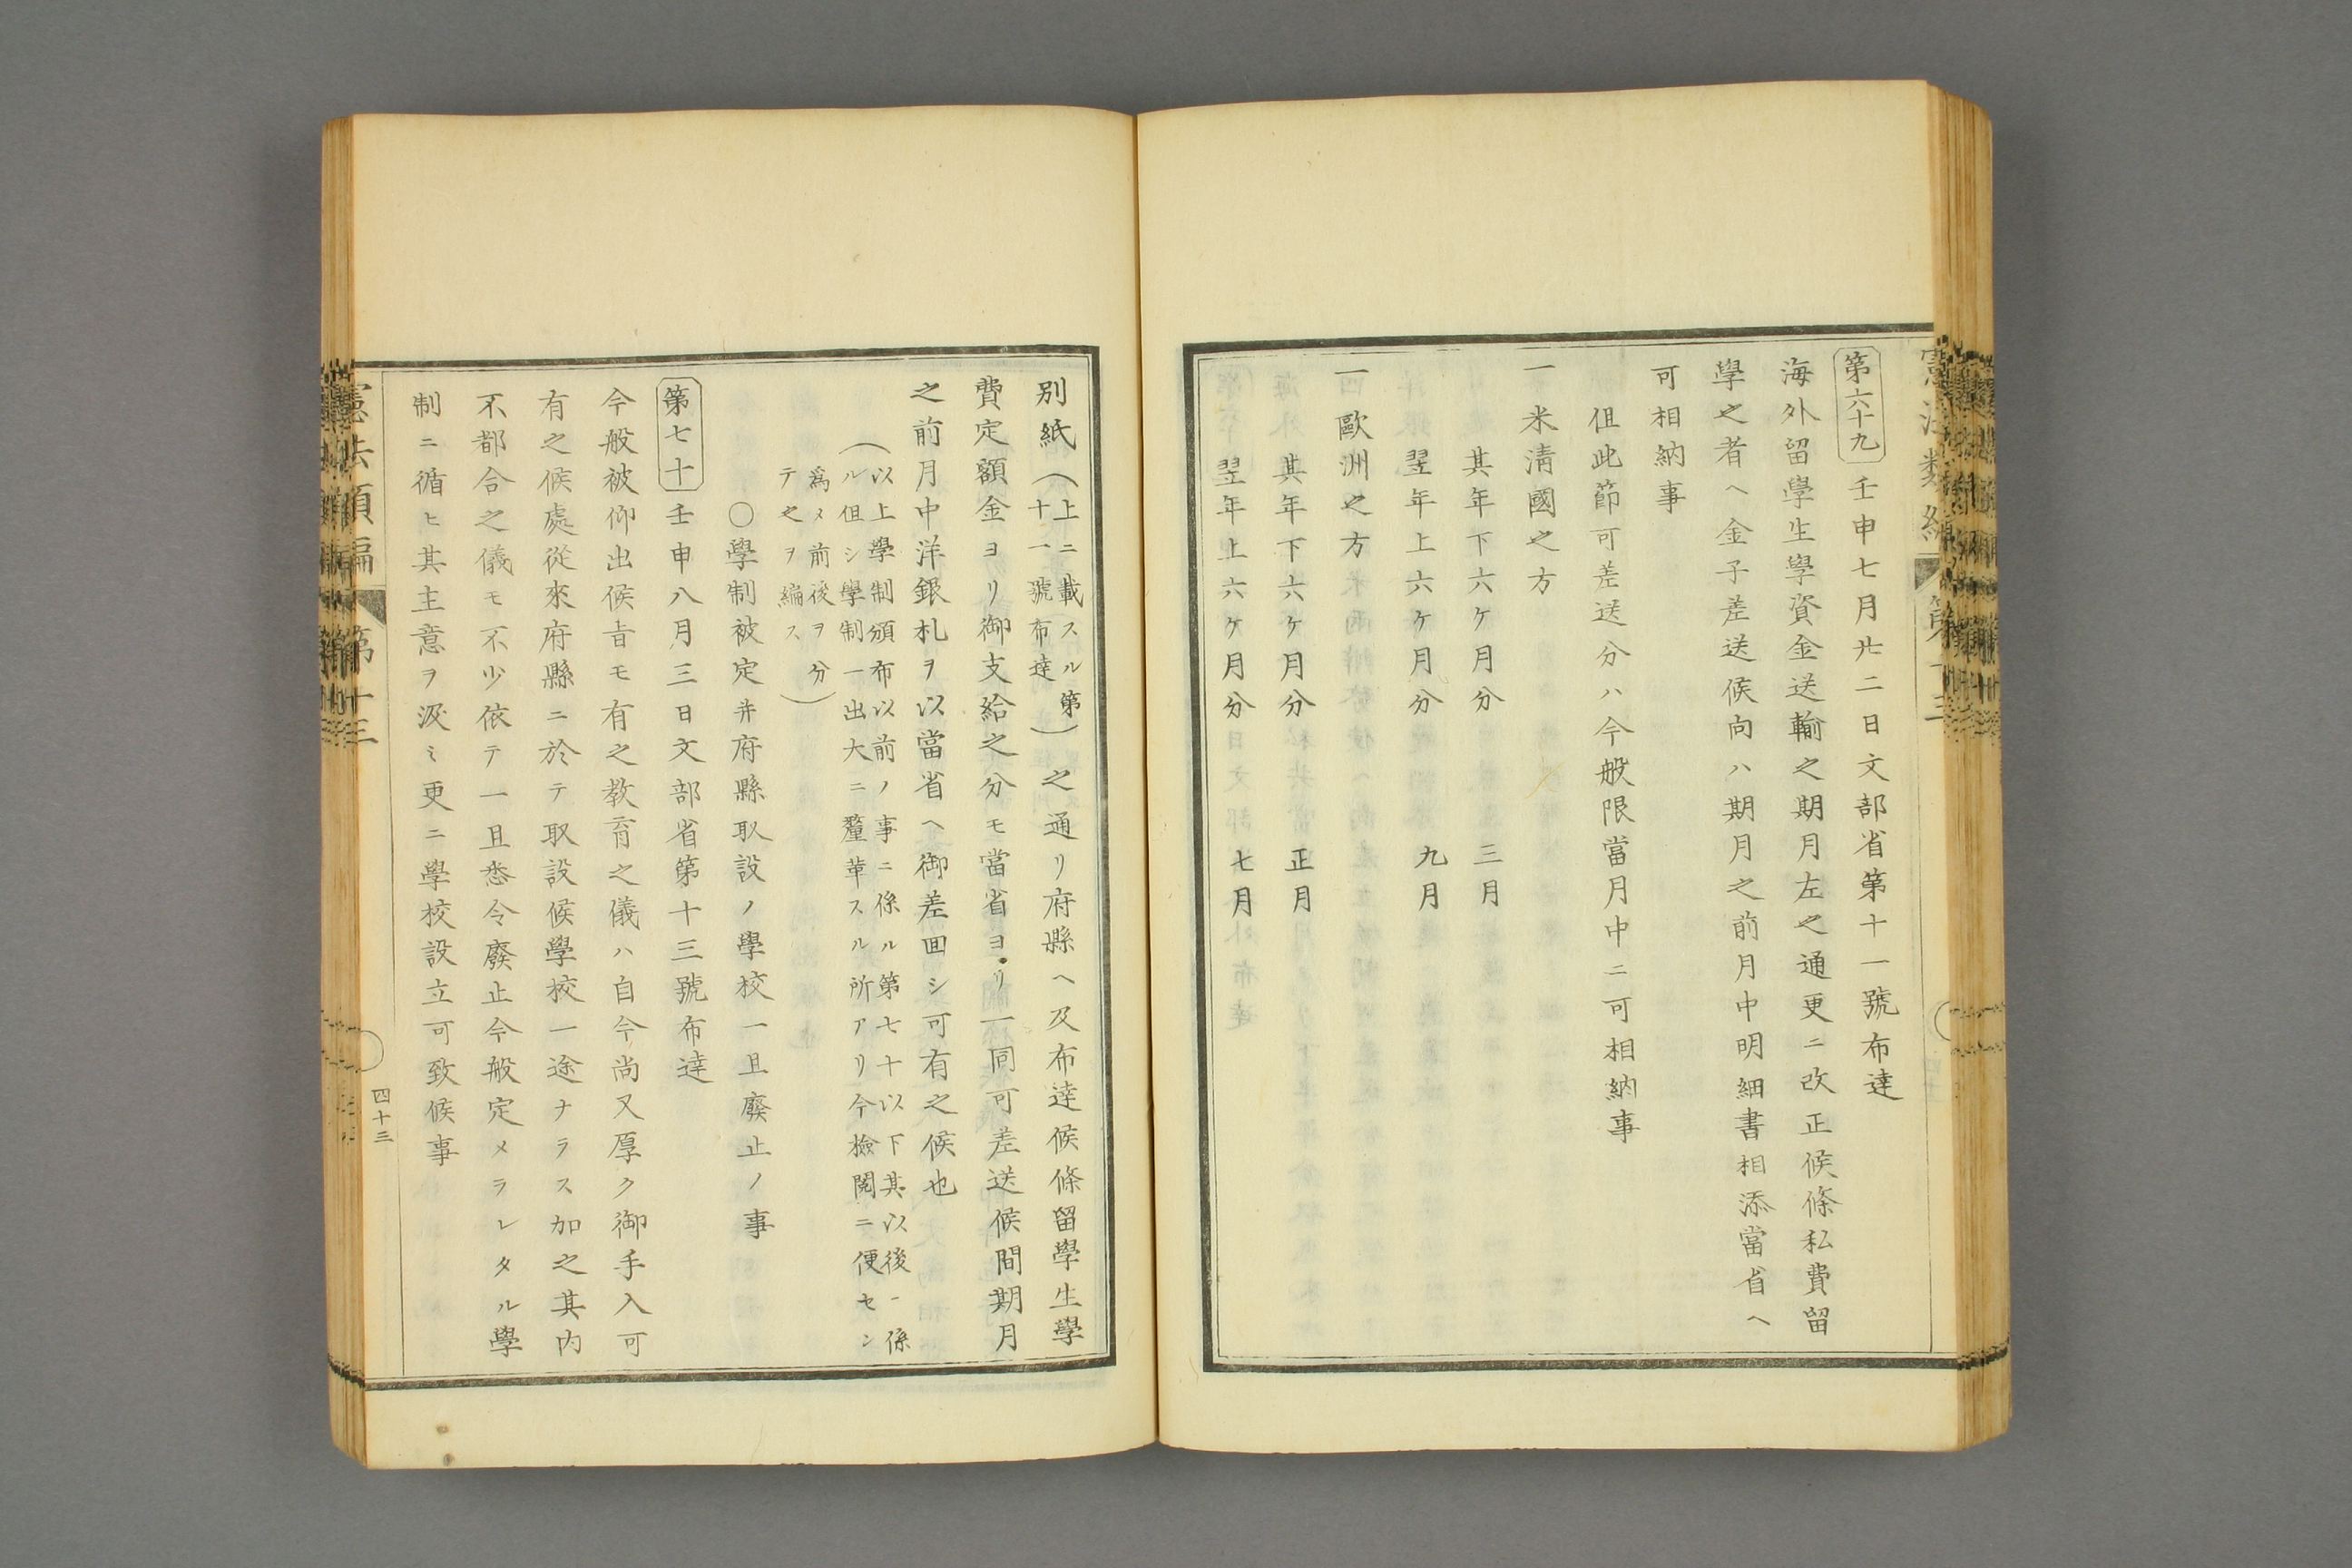 第六十九 壬申七月廿二日文部省第十一號布達
海外留學生學資金送輸之期月左之通更ニ改正候條私費留
學之者ヘ金子差送候向ハ期月之前月中明細書相添當省ヘ
可相納事
但此節可差送分ハ今般限當月中ニ可相納事
一米淸國之方
其年下六ケ月分 三月
翌年上六ケ月分 九月
一歐洲之方
其年下六ケ月分 正月
翌年上六ケ月分 七月
別紙(上ニ載スル第
十一號布達)之通リ府縣ヘ及布達候條留學生學
費定額金ヨリ御支給之分モ當省ヨリ一同可差送候間期月
之前月中洋銀札ヲ以當省ヘ御差囬シ可有之候也
(以上學制頒布以前ノ事ニ係ル第七十以下其以後ニ係
ル但シ學制一出大ニ釐革スル所アリ今檢閱ニ便セン
爲メ前後ヲ分
テ之ヲ編ス)
○學制被定并府縣取設ノ學校一旦廢止ノ事
第七十 壬申八月三日文部省第十三號布達
今般被仰出候旨モ有之敎育之儀ハ自今尚又厚ク御手入可
有之候處從來府縣ニ於テ取設候學校一途ナラス加之其內
不都合之儀モ不少依テ一旦悉令廢止今般定メラレタル學
制ニ循ヒ其主意ヲ汲ミ更ニ學校設立可致候事
憲法類編 第十三
四十三